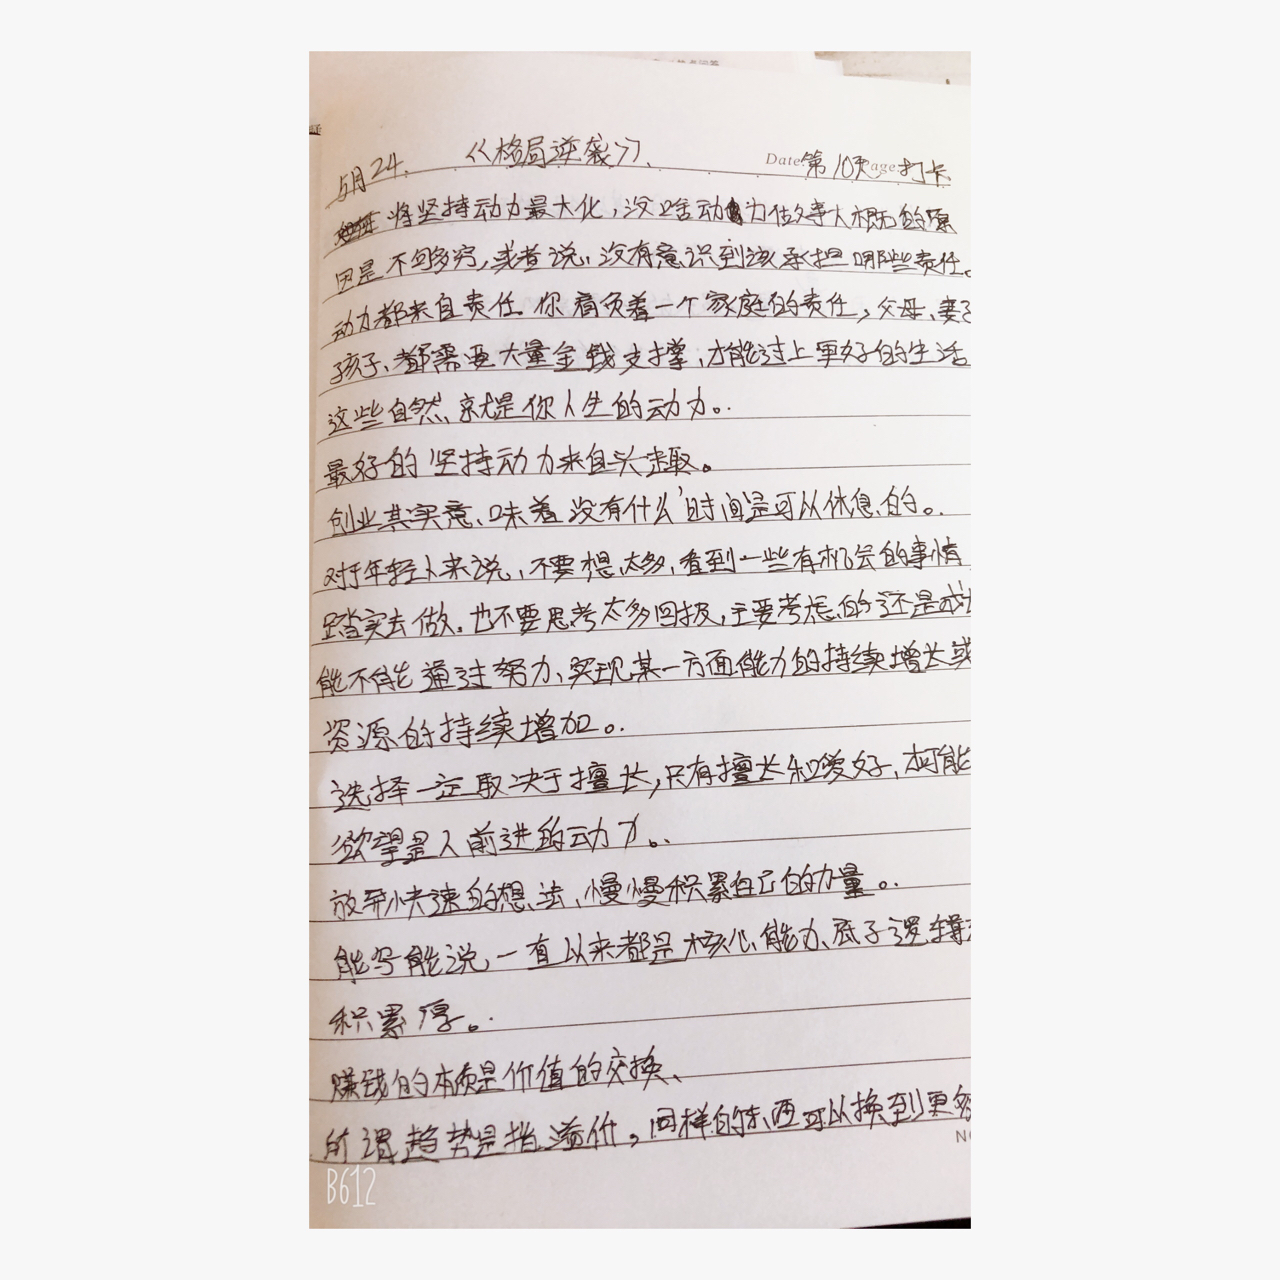 5月24. 《格局逆袭》. Date 第10天 Page 打卡
将坚持动力最大化,没啥动力做事大概的原
因是不够穷,或者说,没有意识到该承担哪些责任。
动力都来自责任.你肩负着一个家庭的责任,父母、妻子
孩子、都需要大量金钱支撑,才能过上更好的生活
这些自然、就是你人生的动力。
最好的坚持动力来自兴趣。
创业其实意、味着没有什么时间是可以休息、的。
对于年轻人来说,不要想太多,看到一些有机会的事情
踏实去做。也不要思考太多回报,主要考虑的还是
能不能通过努力、实现某一方面能力的持续增长或
资源的持续增加。
选择一定取决于擅长,只有擅长和爱好,才可能
欲望是人前进的动力。
放弃快速的想法、慢慢积累自己的力量。
能写能说、一直以来都是核心能力、底子逻辑
积累厚。
赚钱的本质是价值的交换、
所谓趋势是指溢价,同样的东西可以换到更多
B612